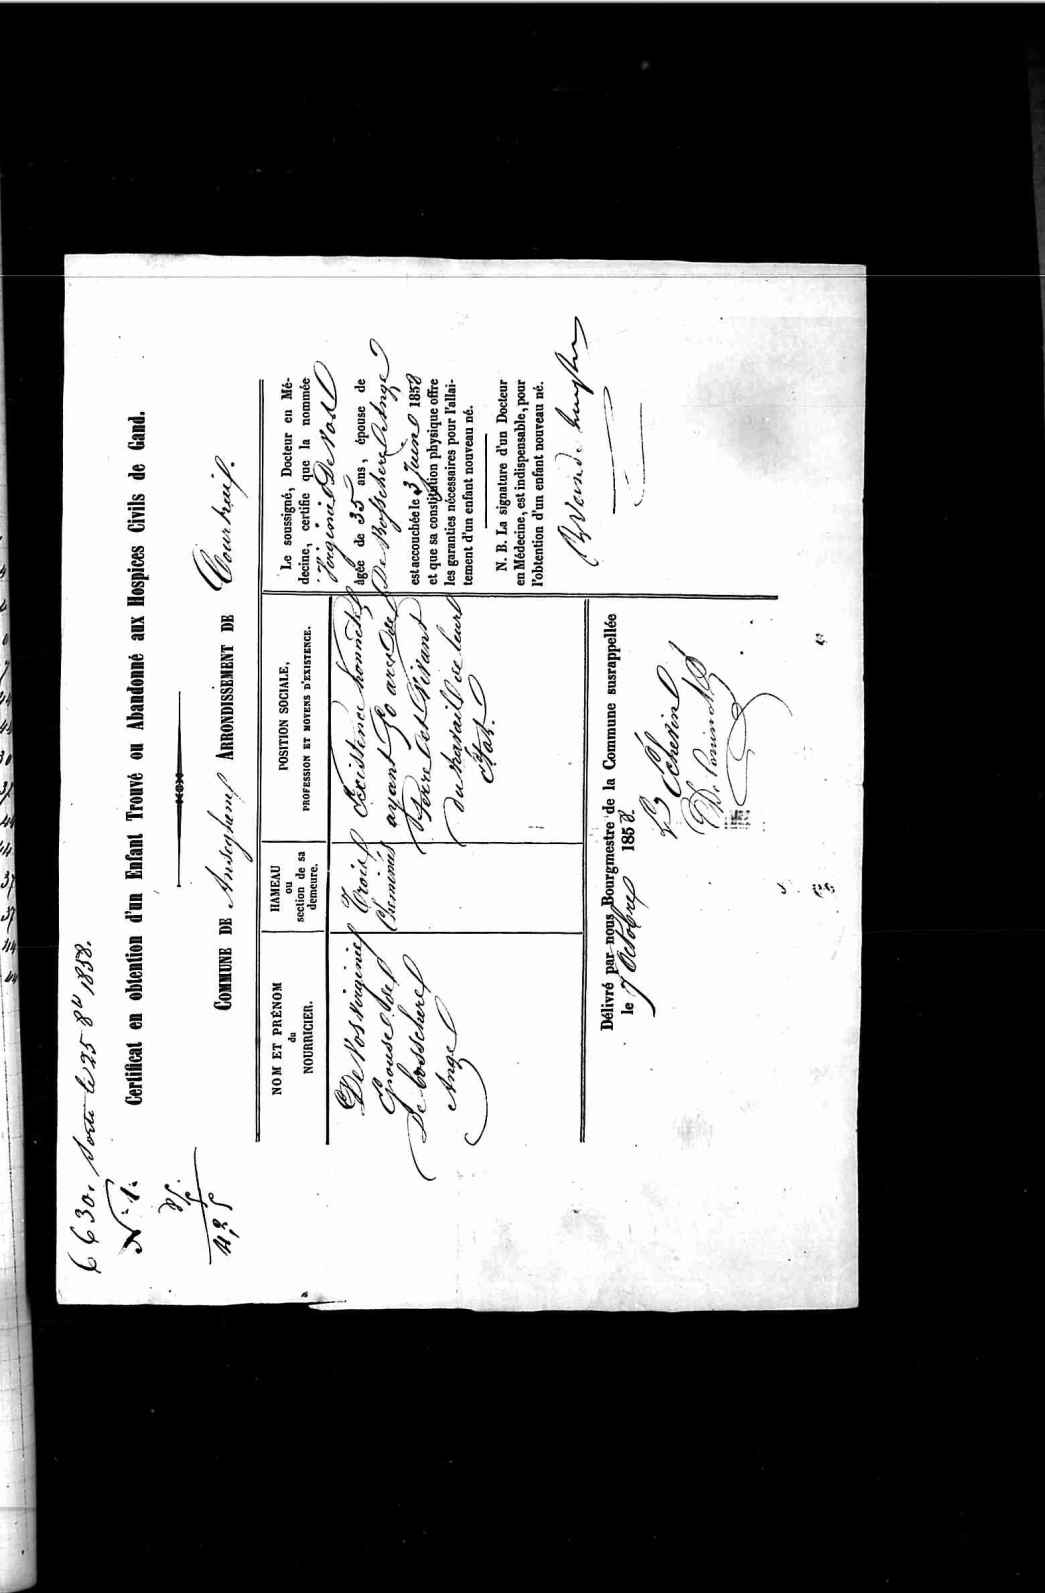 6630. Sortie le 25 8bre 1858.
N° 1.
425
Certificat en obtention d'un Enfant Trouvé ou Abandonné aux Hospices Civils de Gand.
COMMUNE DE Anseghem ARRONDISSEMENT DE Courtrai.
NOM ET PRÉNOM
du
NOURRICIER.
De Vos Virginie
Epouse de
De bosschere
Ange
HAMEAU
ou
section de sa
demeure.
Trois
Chemins
POSITION SOCIALE,
PROFESSION ET MOYENS D'EXISTENCE.
Existence honnête
ayant 50 ares de
Terre et vivant
du travail de leur
état.
Le soussigné, Docteur en Mé-
decine, certifie que la nommée
Virginie De Vos
âgée de 35 ans, épouse de
De Bosschere Ange
est accouchée le 3 Juin 1858
et que sa constitution physique offre
les garanties nécessaires pour l'allai-
tement d'un enfant nouveau né.
N. B. La signature d'un Docteur
en Médecine, est indispensable, pour
l'obtention d'un enfant nouveau né.
Délivré par nous Bourgmestre de la Commune susrappellée
le 7 Octobre 1858.
Echevin